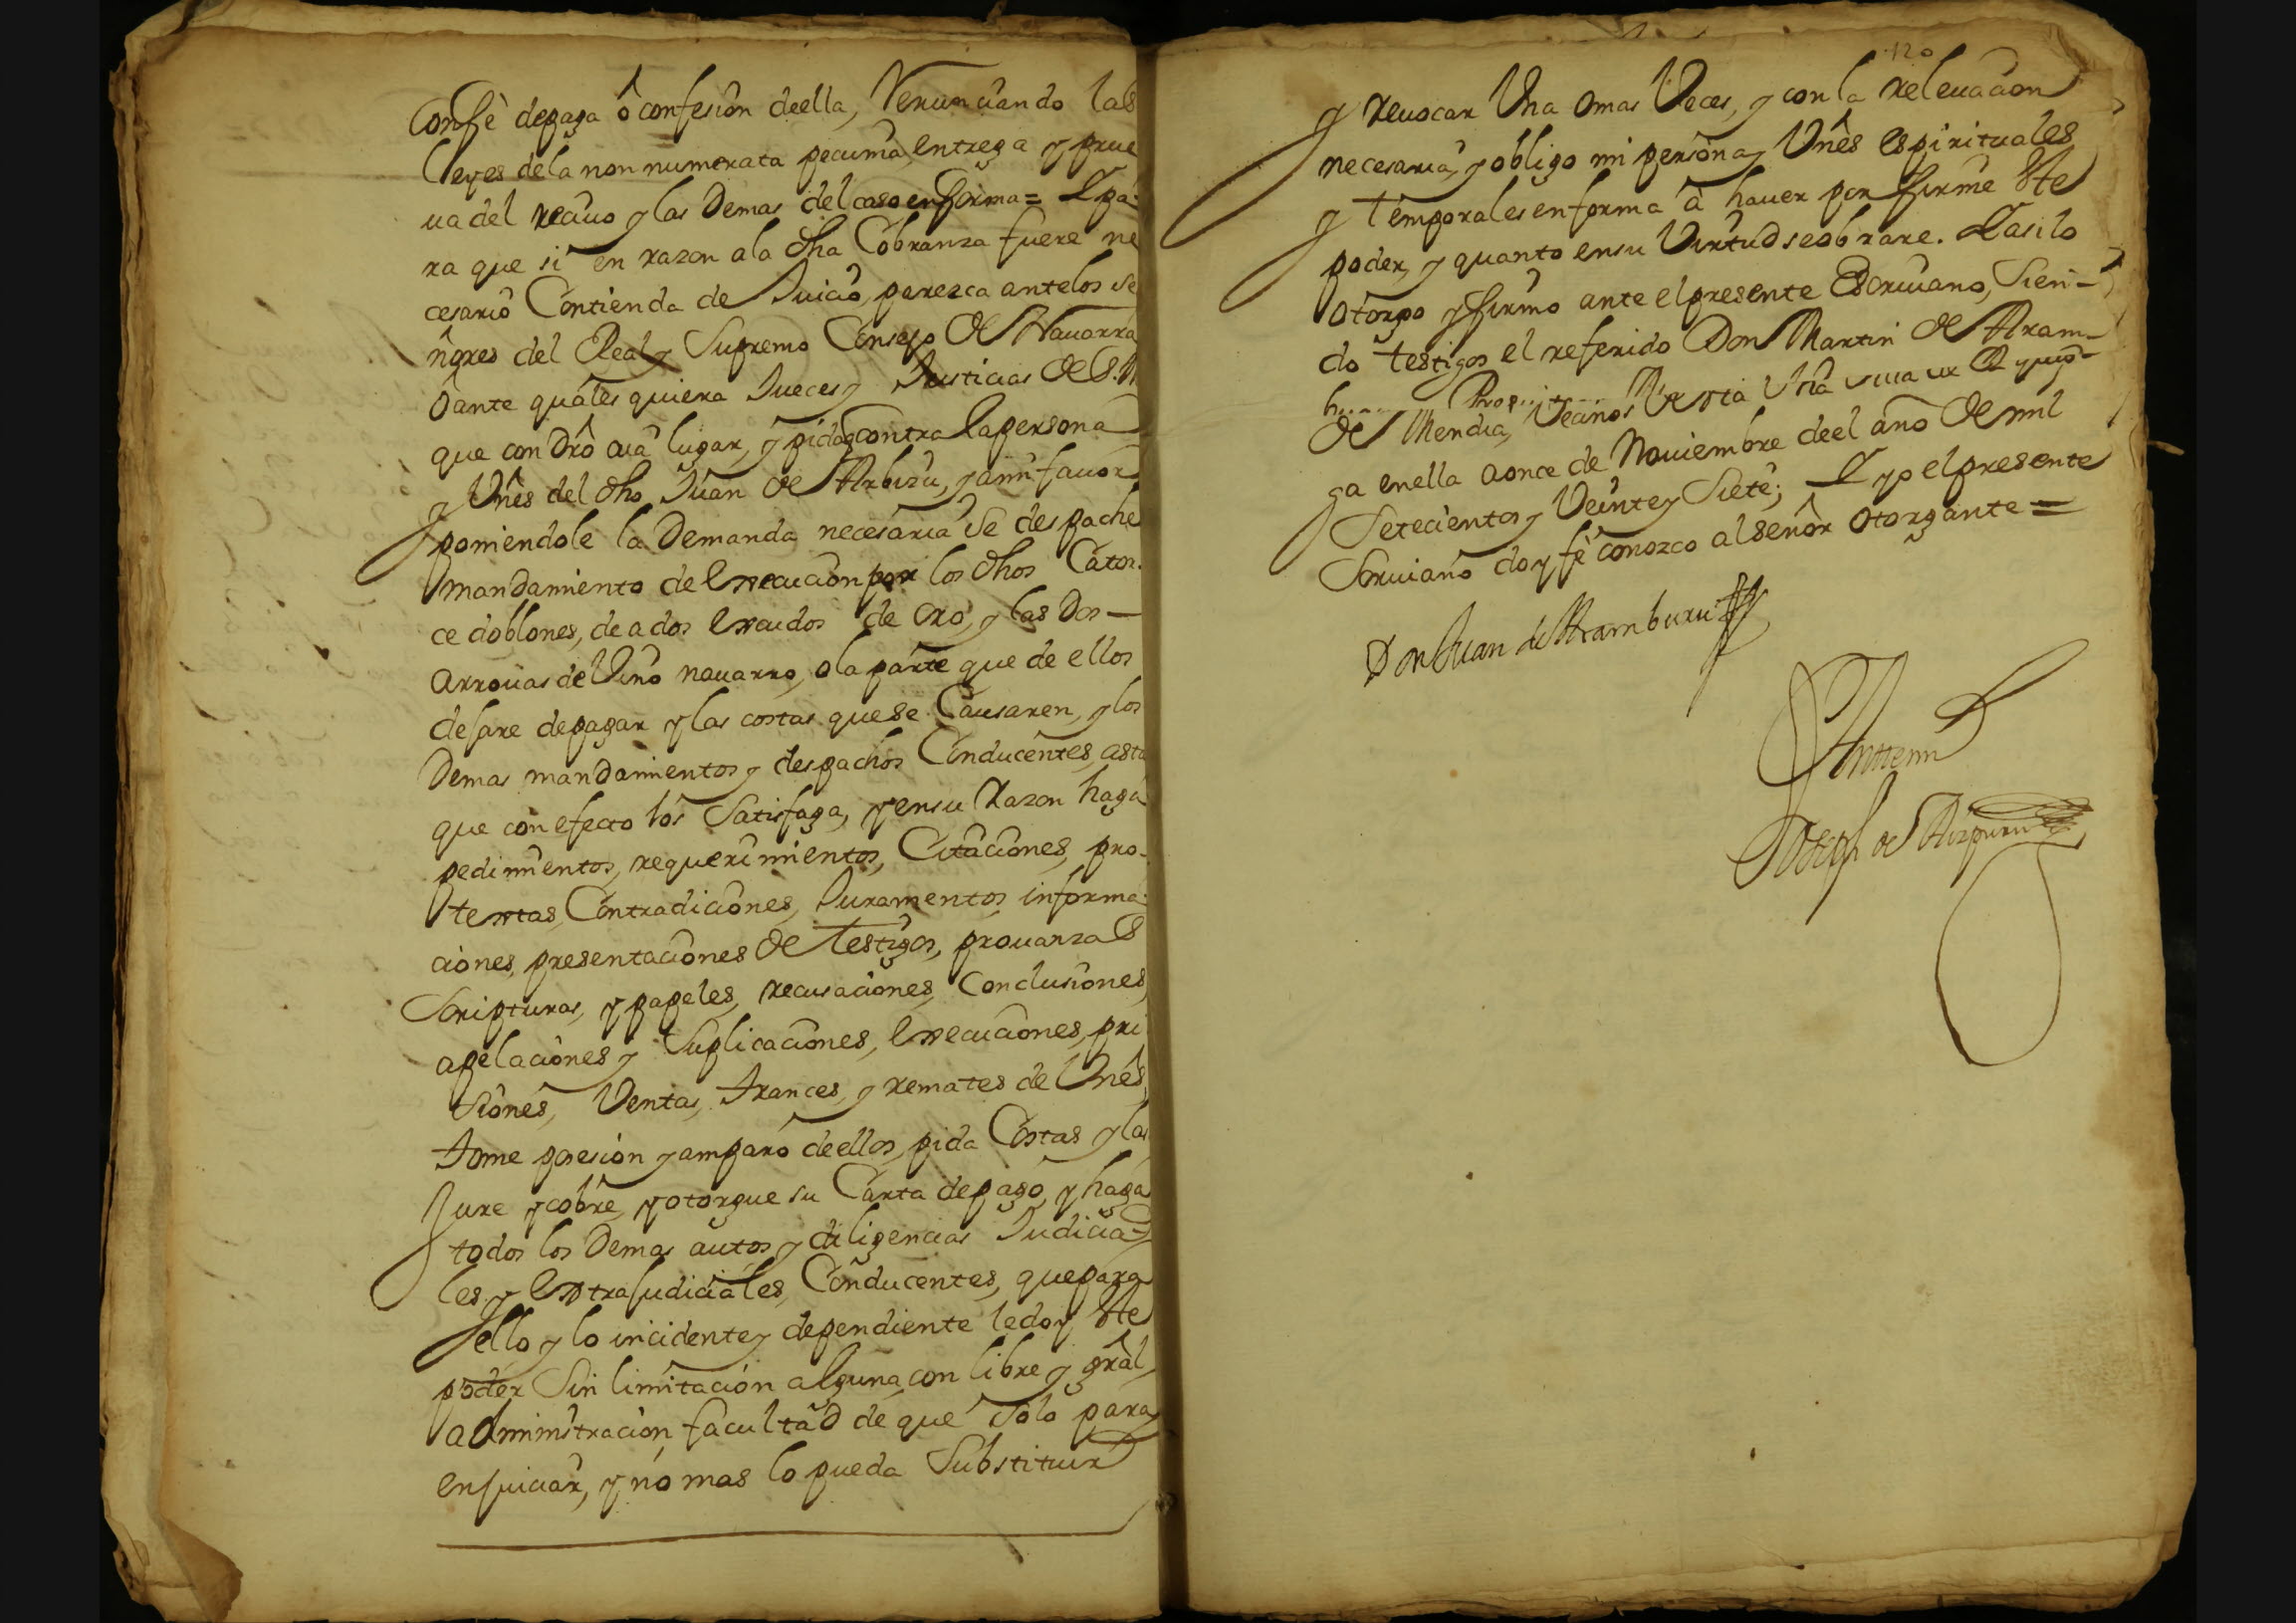 Confè de paga ô confesion de ella, Renunciando las
leyes de la non numerata pecunia, entrega y prue
ua del reciuo y las Demas del caso en forma = Y pa-
ra que si en razon a la dha Cobranza fuere ne
cesario Contienda de Juicio, parezca ante los se
ñores del Real y Supremo Consejo de Nauarra
O ante quales quiera Jueces y Justicias de S. M
que con Drô aia lugar, y pida contra la persona
y Vnês del dho Juan de Arbizu, y a mi fauor
poniendole la Demanda necesaria Se despache
mandamiento de Execucion por los dhos Cator-
ce doblones, de a dos escudos de oro, y las Dos
Arrouas de Vino nauarro, o la parte que de ellos
dejare de pagar y las costas que se Causaren, y los
Demas mandamientos y despachos Conducentes, asta
que con efecto los Satisfaga, y en su Razon haga
pedimientos, requerimientos, Citaciones, pro-
textas, Contradiciones, Juramentos informa-
ciones, presentaciones de Testigos, prouanzas
Scripturas, y papeles, recusaciones, Conclusiones,
apelaciones y Suplicaciones, Execuciones, pri
siones, Ventas, trances, y remates de Vnês,
tome posesion y amparo de ellos, pida Costas y las
Jure y cobre, y otorgue su Carta de pago, y haga
todos los Demas autos y diligencias Judicia-
les y Extrajudiciales, Conducentes, que para
ello y lo incidente y dependiente le doy Ste
poder Sin limitacion alguna, con libre y grâl,
administracion, facultad de que Solo para
enjuiciar, y no mas lo pueda Substituir
120
y reuocar Vna o mas Veces, y con la releuacion
necesaria, y obligo mi persona y Vnês espirituales
y temporales en forma à hauer por firme Ste
poder, y quanto en su Virtud se obrare. Y asi lo
Otorgo y firmo ante el presente Escriuano, Sien-
do testigos el referido Don Martin de Aram-
de Mendia, Vecinos
ga en ella a once de Nouiembre de el año de mil
Setecientos y Veinte y Siete; E yo el presente
Scriuano doy fè conozco al señor Otorgante =
Don Juan de Aramburu
Antemi
Joseph de Aizpuru